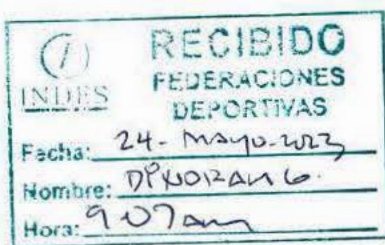 INDES
RECIBIDO
FEDERACIONES
DEPORTIVAS
Fecha: 24-Mayo-2023
Nombre:
Hora: 9:07am